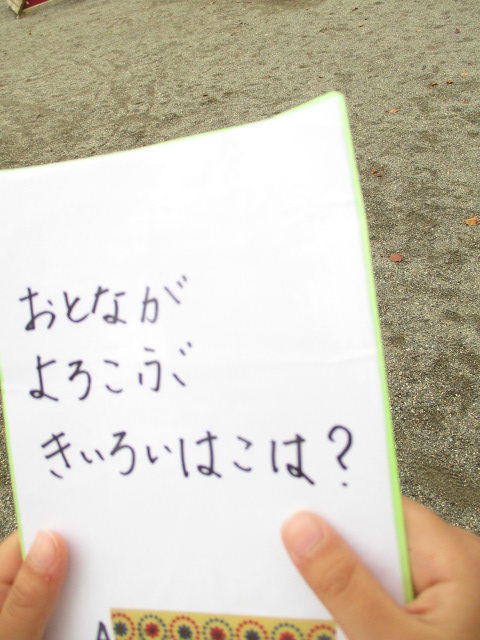 おとなが
よろこぶ
きいろいはこは?
A